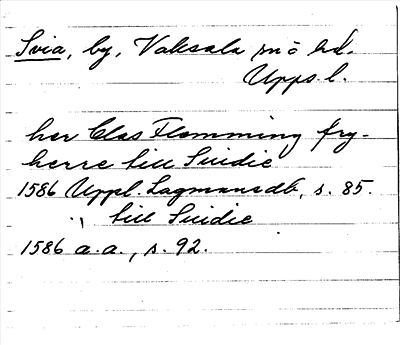 Svia, by, Vaksala sn o hd.
Upps. l.
her Clas Flemming fry-
herre till Suidie
1586 Uppl. Lagmansdb, s. 85.
" till Suidie
1586 a.a., s. 92.